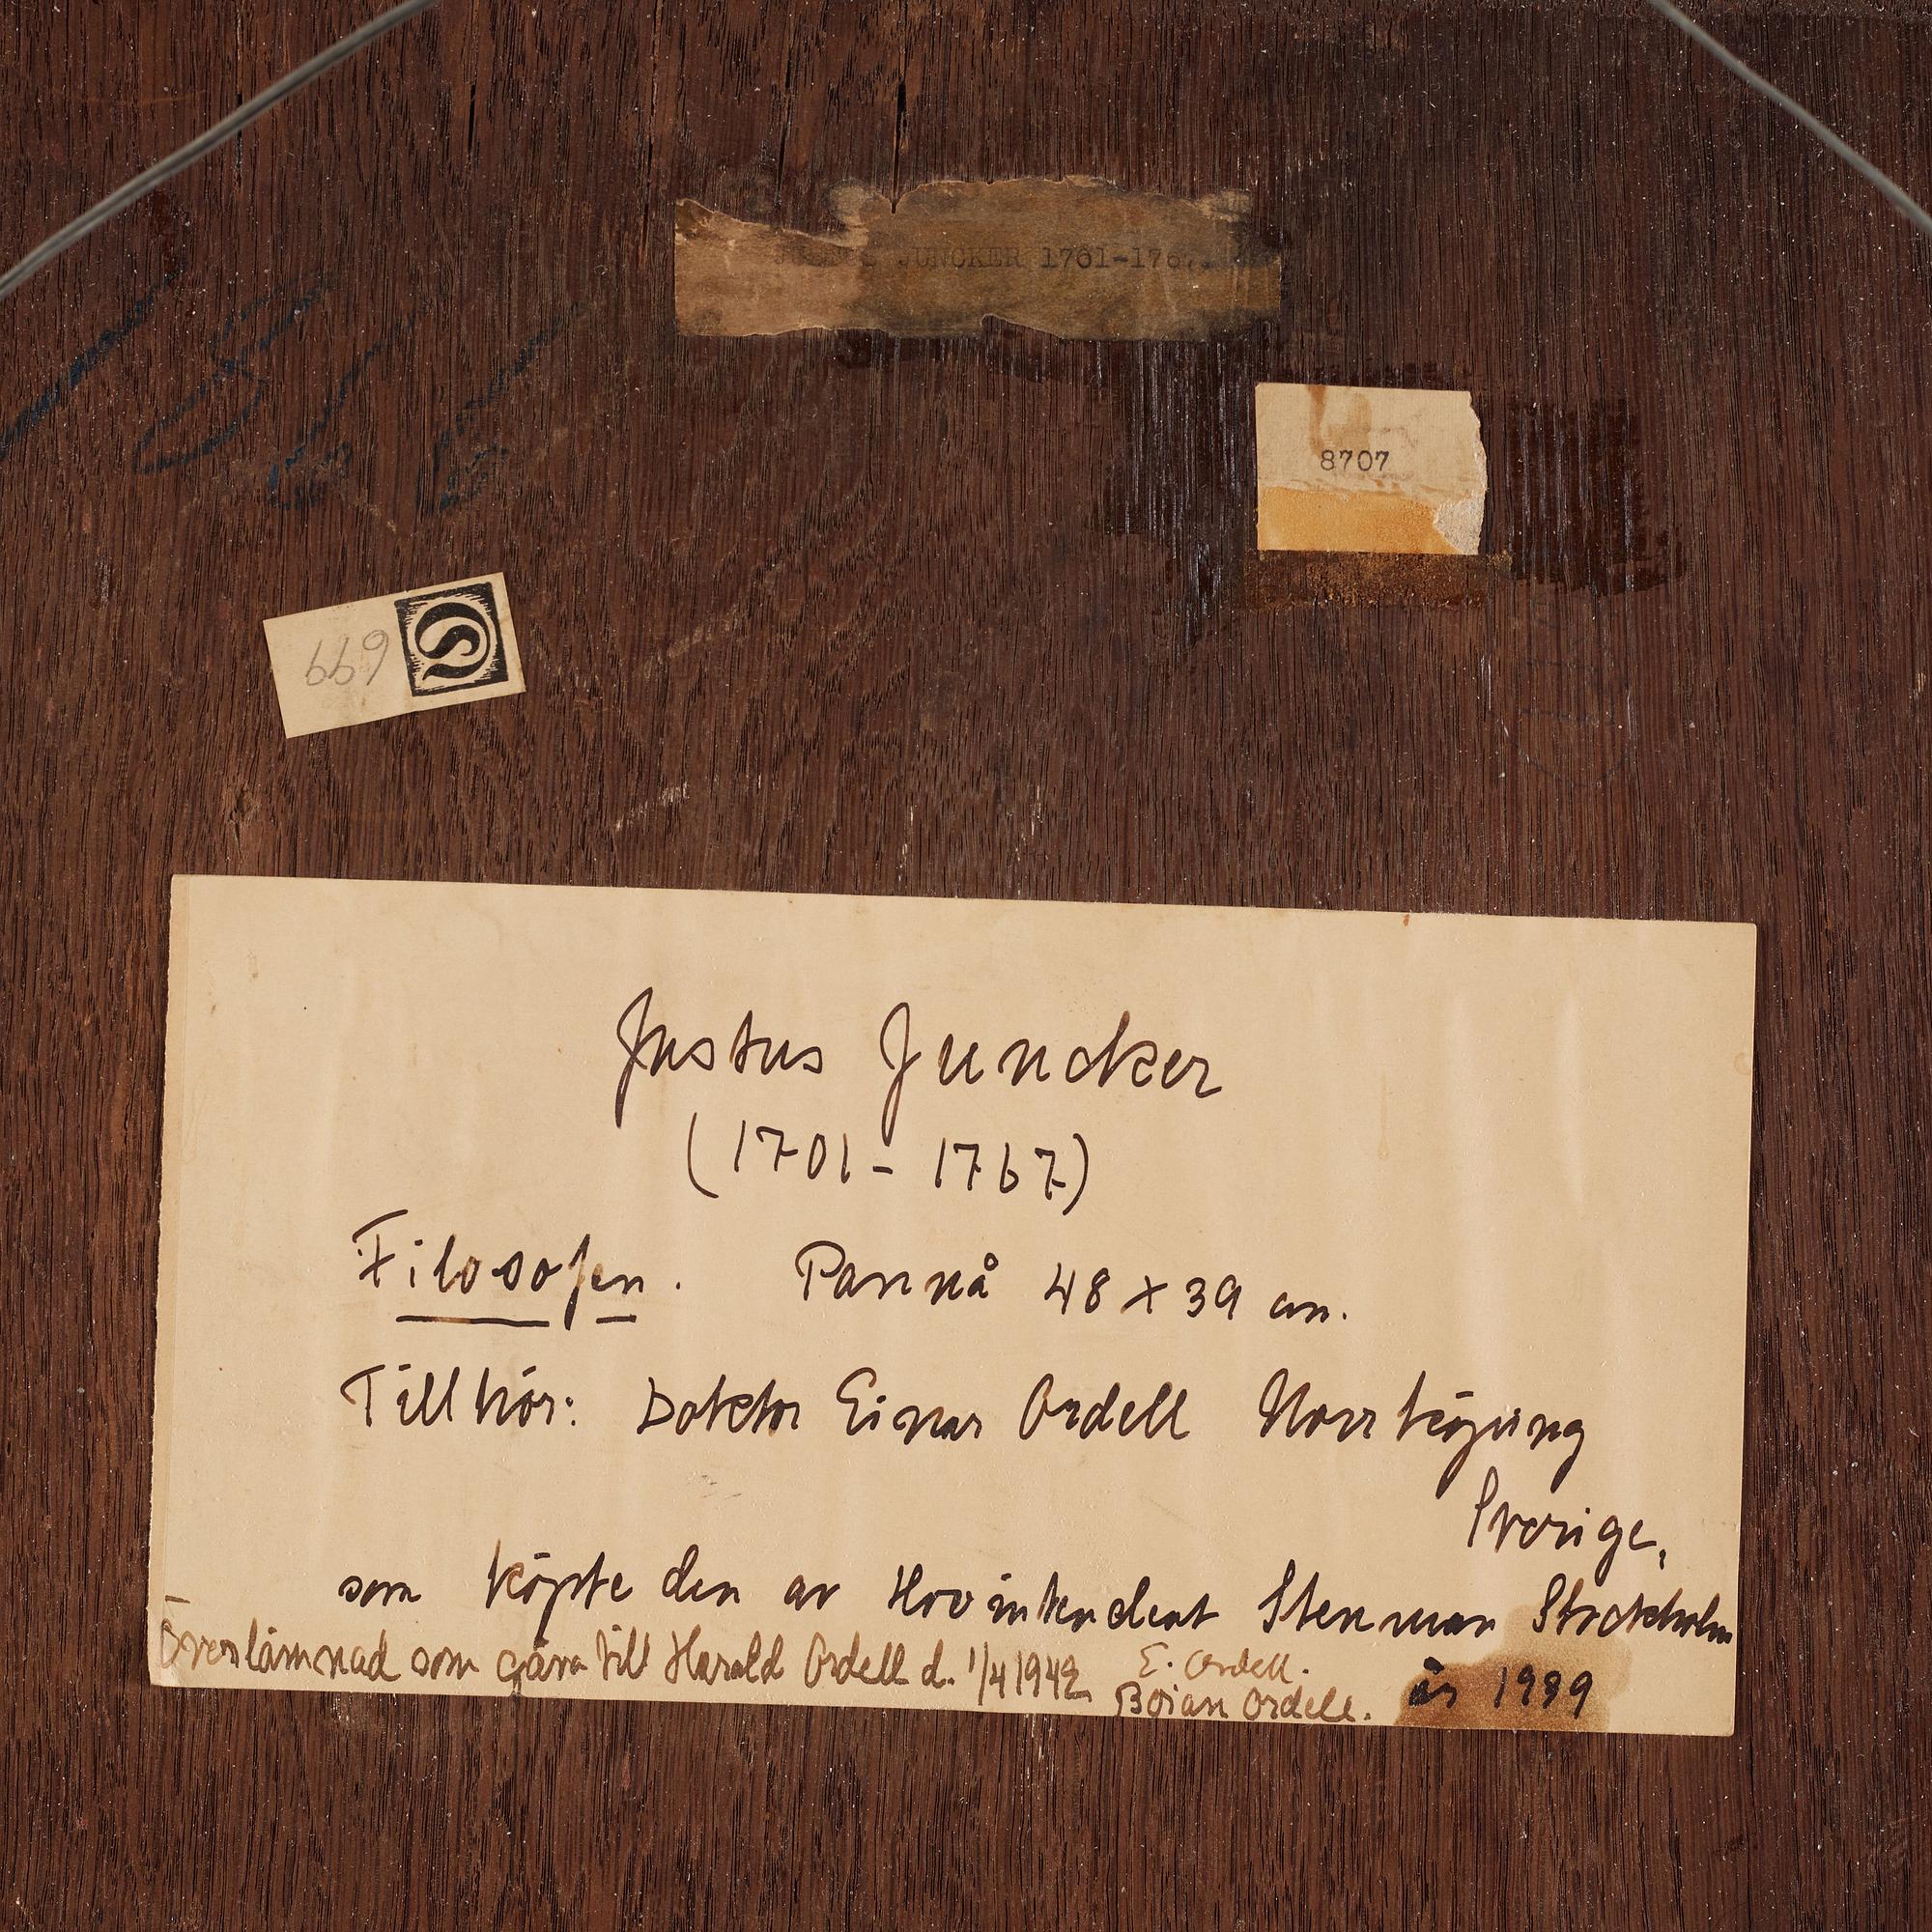 JUNCKER 1701-1767.
8707
699
Justus Juncker
(1701 - 1767)
Filosofen. Pannå 48 x 39 cm.
Tillhör: Doktor Einar Ordell Norrköping
Sverige,
som köpte den av Hovintendent Stenman Stockholm
år 1939
Överlämnad som gåva till Harald Ordell d. 1/4 1942
E. Ordell.
Ordell.